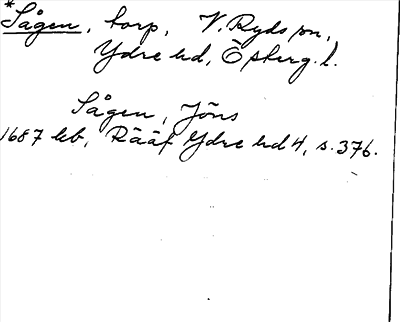 *Sågen, torp, V. Ryds sn,
Ydre hd, Östergötl.
Sågen, Jöns
1687 kb, Rääf Ydre hd 4, s. 376.